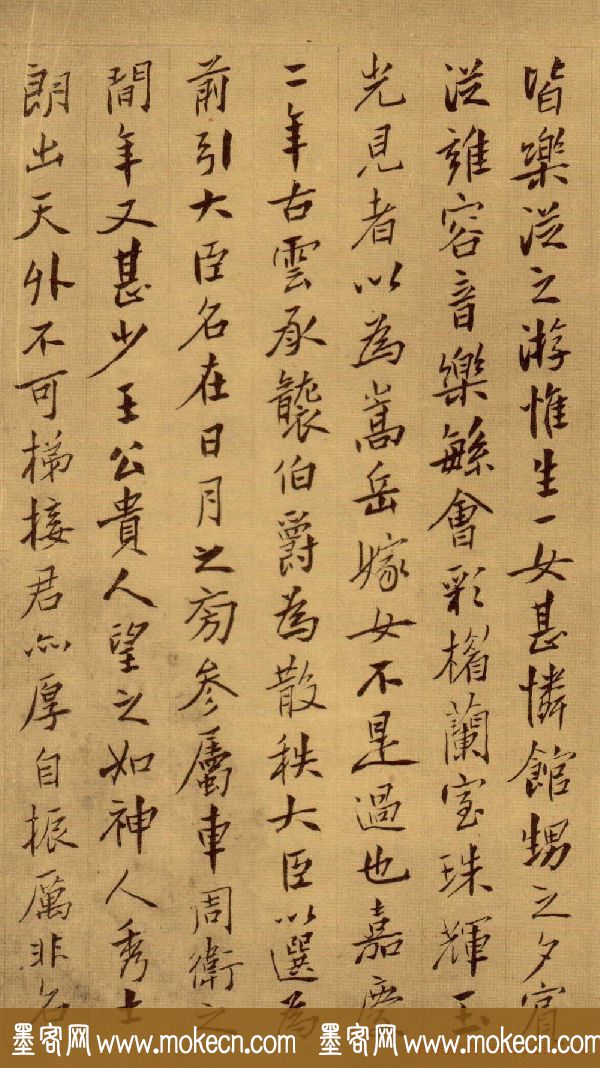 皆樂從之游惟生一女甚憐館甥之夕賓
從雍容音樂繇會彩楣蘭室珠輝玉
光見者以為嵩岳嫁女不是過也嘉慶
二年古雲承襲伯爵為散秩大臣以選為
前引大臣名在日月之旁参屬車周衛之
間年又甚少王公貴人望之如神人秀士
朗出天外不可梯接君亦厚自振厲非名
墨客网 www.mokecn.com 墨客网 www.mokecn.com